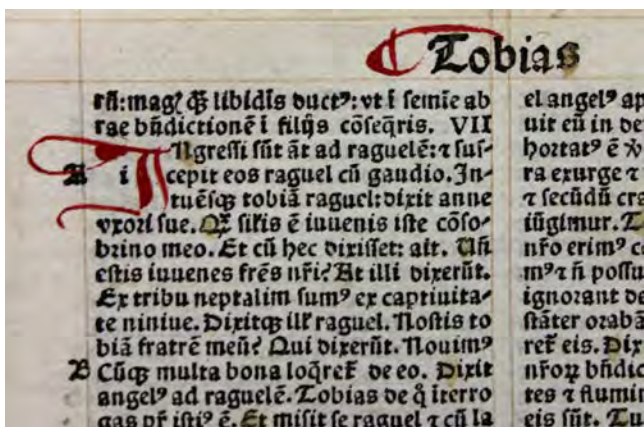 Tobias
rũ:magꝭ ꝙ̃ libidĩs ductꝰ:vt ĩ semĩe ab
rae bñdictionẽ ĩ filijs cõseq̃ris. VII
INgressi sũt ãt ad raguelẽ:⁊ sus-
A i cepit eos raguel cũ gaudio. In-
tuẽsqꝫ tobiã raguel:dixit anne
vxori sue. Qꝫ silis ẽ iuuenis iste cõso-
brino meo. Et cũ hec dixisset: ait. Uñ
estis iuuenes frẽs nr̃i? At illi dixerũt.
Ex tribu neptalim sumꝰ ex captiuita-
te niniue. Dixitqꝫ ill' raguel. Nostis to
biã fratrẽ meũ? Qui dixerũt. Nouimꝰ
B Cũqꝫ multa bona loq̃reꝼ de eo. Dixit
angelꝰ ad raguelẽ. Tobias de q̊ ĩterro
gas pr̃ istiꝰ ẽ. Et misit se raguel ⁊ cũ la
el angelꝰ ap
uit eũ in de
hortatꝰ ẽ
ra exurge ⁊
⁊ secũdũ
iũgimur.
nr̃o erimꝰ c
mꝰ⁊ ñ possu
ignorant de
stãter orabã
reꝼ eis. Dix
nr̃oꝝ bñdic
tes ⁊ flumin
eis sũt. Tu